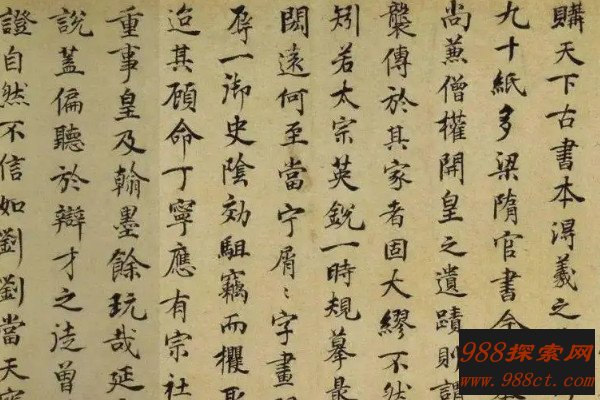 購天下古書本淂羲之
九十紙多梁隋官書
尚蒹僧權開皇之遺蹟則謂
襲傳於其家者固大繆不然
矧若太宗英銳一時規摹最
閎遠何至當宁屑〻字畫
辱一御史陰効駔竊而攫
迨其顧命丁寧應有宗社
重事皇及翰墨餘玩哉延
說蓋偏聽於辯才之徒曾
證自然不信如劉劉當天
988探索网
www.988ct.com